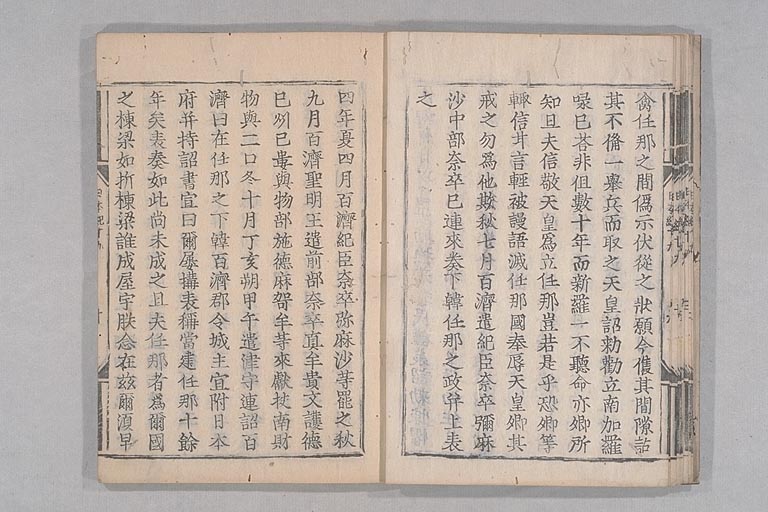 禽任那之間僞示伏從之狀願今隻其間隙詁
其不俻一擧兵而取之天皇詔勅勸立南加羅
㖨已呑非但數十年而新羅一不聽命亦卿所
知且夫信敬天皇爲立任那豈若是乎恐卿等
輙信甘言輕被謾語滅任那國奉辱天皇卿其
戒之勿爲他欺秋七月百濟遣紀臣奈卒彌麻
沙中部奈卒己連來奏下韓任那之政幷上表
之
四年夏四月百濟紀臣奈卒弥麻沙等罷之秋
九月百濟聖明王遣前部奈卒眞牟貴文護德
已州已婁與物部施德麻竒牟等來獻扶南財
物與二口冬十月丁亥朔甲午遣津守連詔百
濟曰在任那之下韓百濟郡令城主宜附日本
府幷持詔書宣曰爾屢抗表稱當建任那十餘
年矣表奏如此尚未成之且夫任那者爲爾國
之棟梁如折棟梁誰成屋宇朕念在茲爾湏早